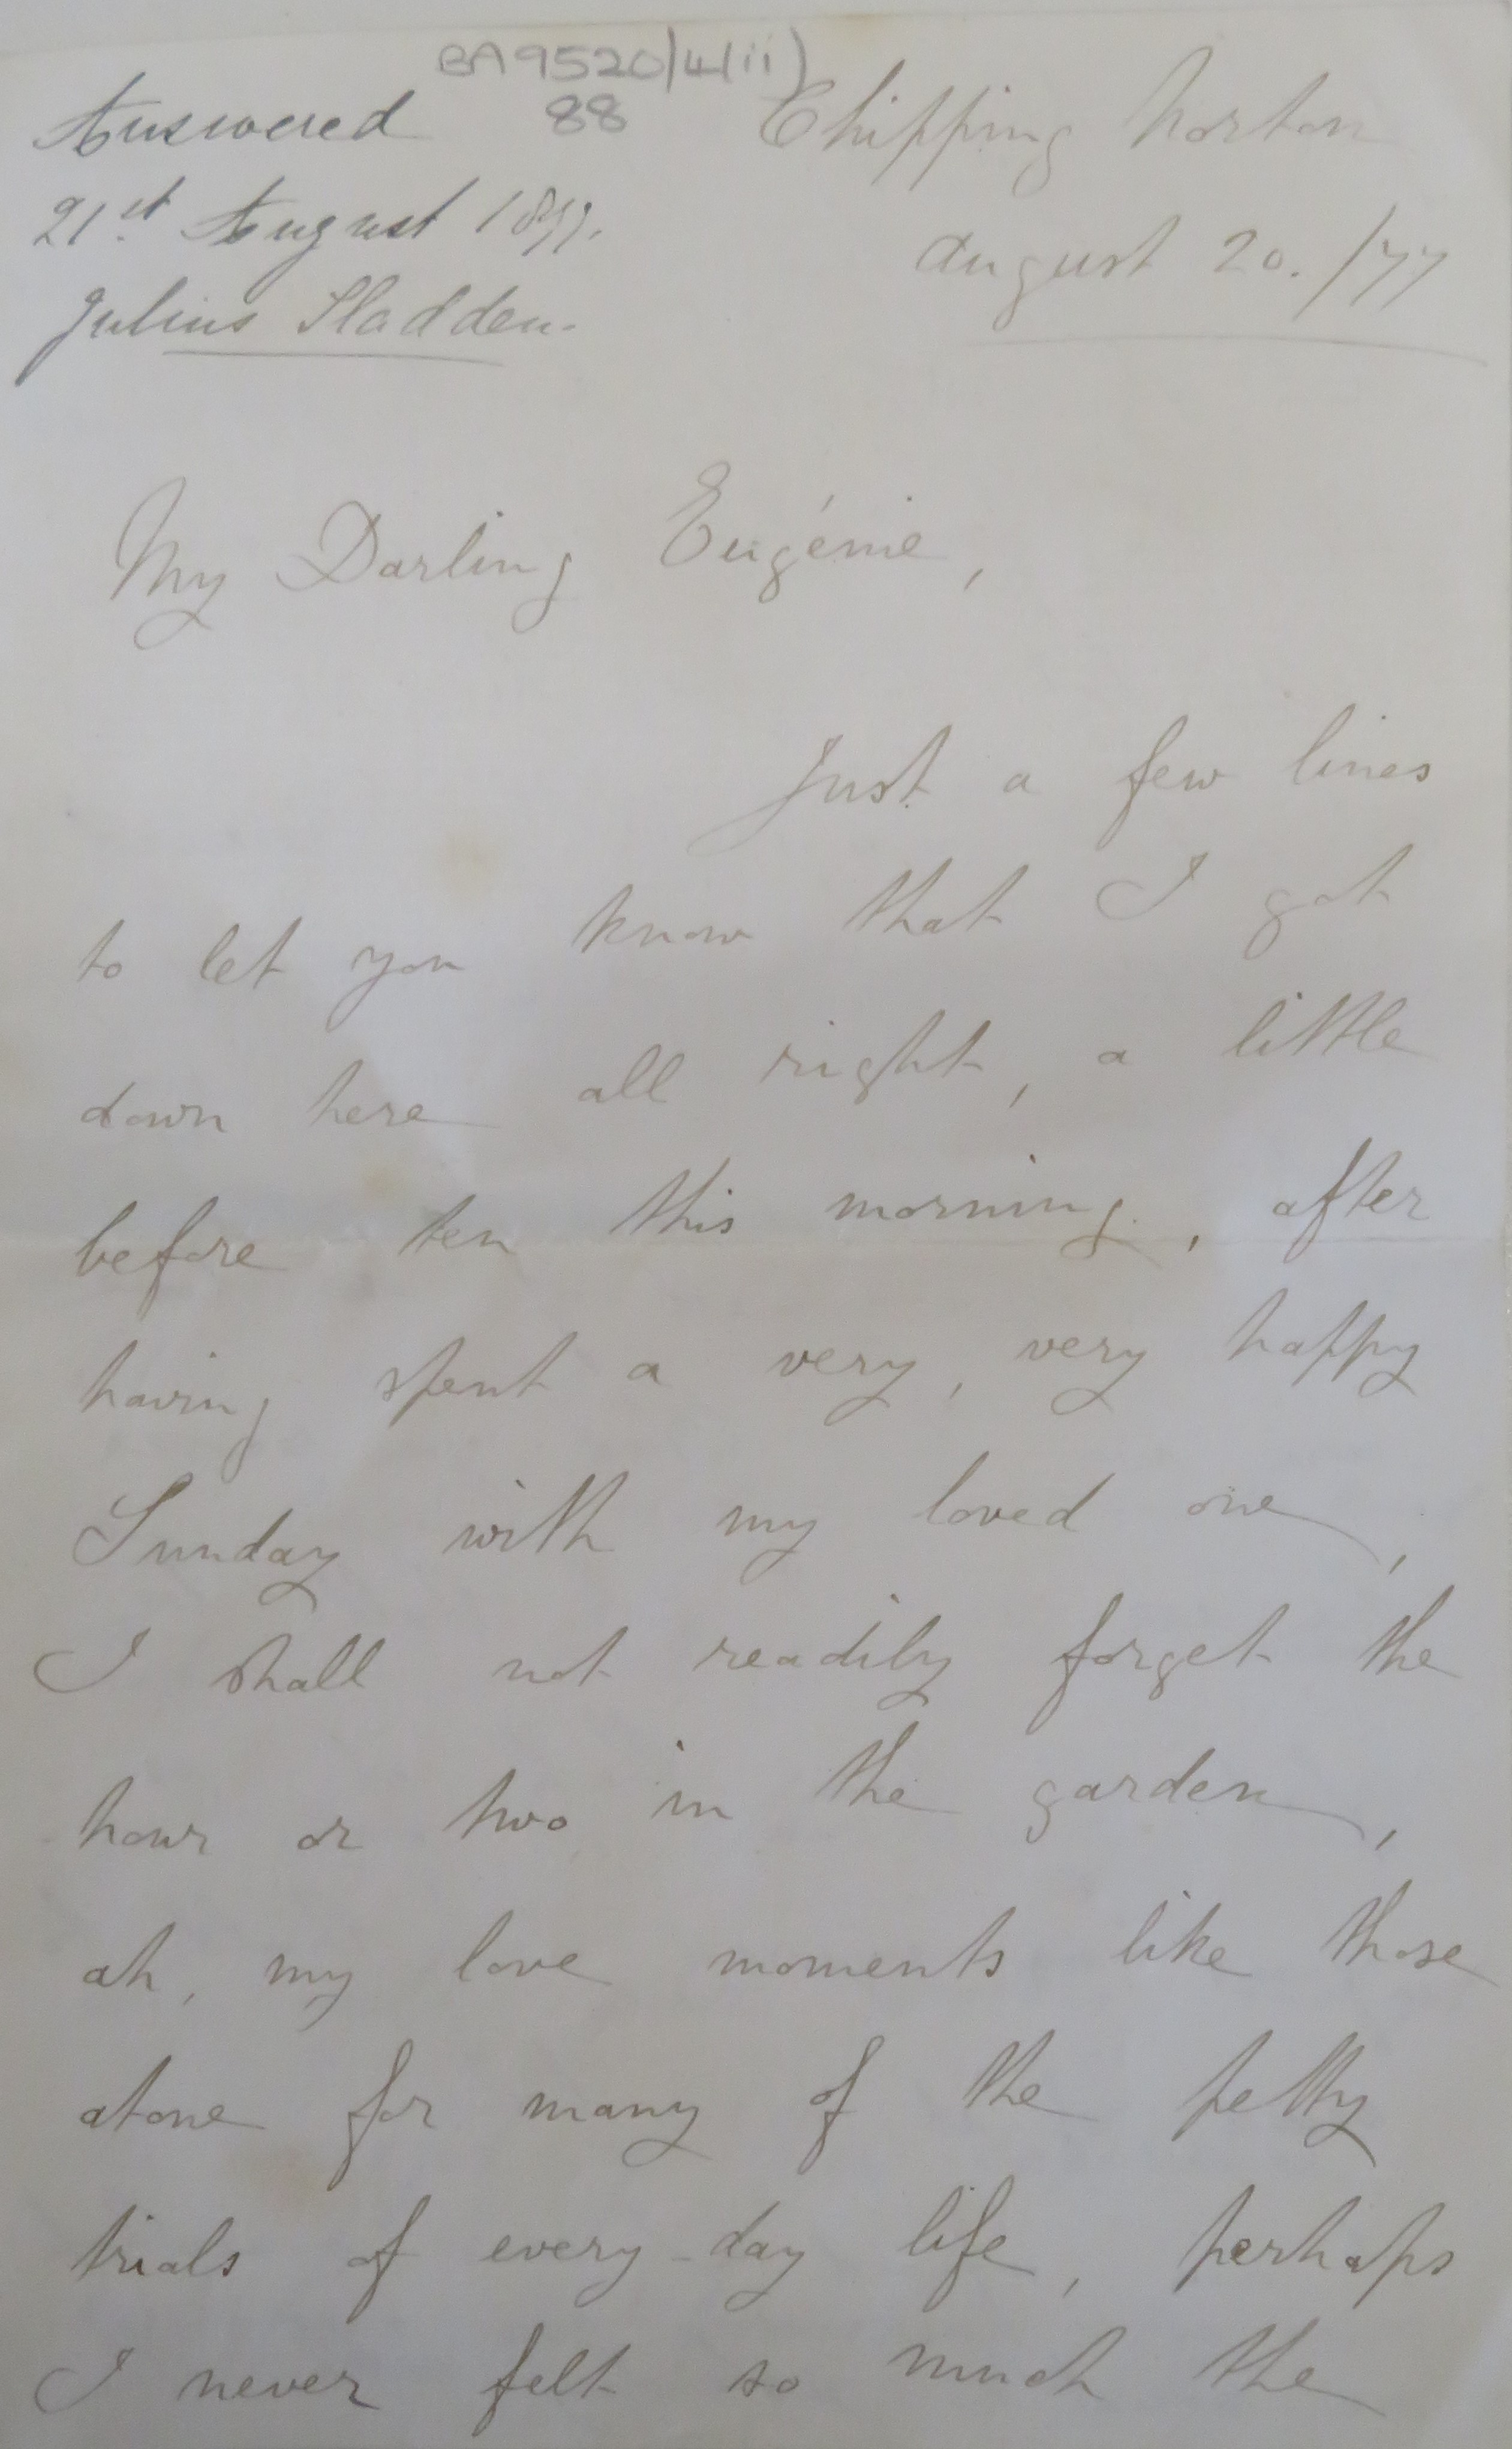 BA9520/4(ii)
88
Answered
21st August 1877.
Julius Sladden.
Chipping Norton
August 20. /77
My Darling Eugénie,
Just a few lines
to let you know that I got
down here all right, a little
before ten this morning, after
having spent a very, very happy
Sunday with my loved one,
I shall not readily forget the
hour or two in the garden,
ah, my love moments like those
atone for many of the petty
trials of every-day life, perhaps
I never felt so much the